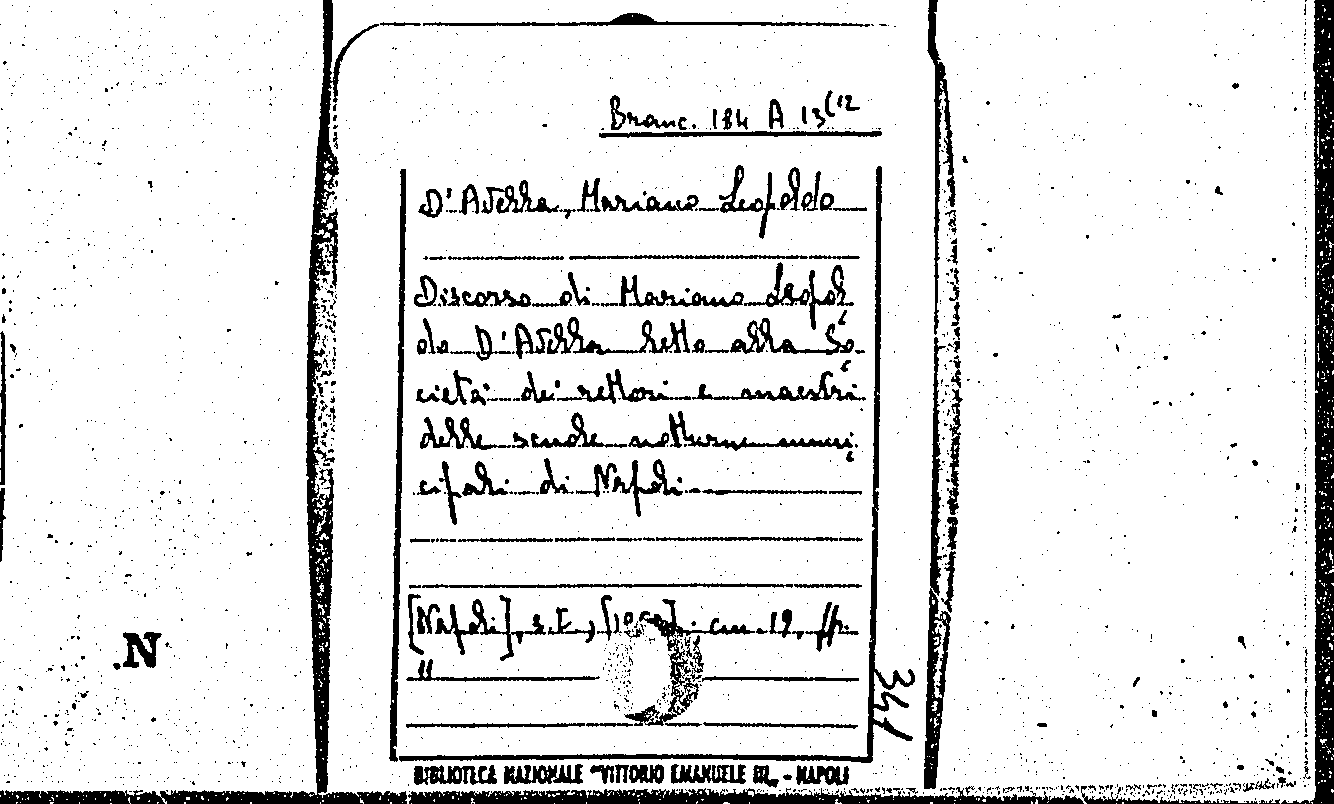 Branc. 184 A 13(12
D'Avella, Mariano Leopoldo
Discorso di Mariano Leopol
do D'Avella letto alla So
cietà dei rettori e maestri
delle scuole notturne muni
cipali di Napoli.
[Napoli], s.E., cm. 19, pp.
11
341
.N
BIBLIOTECA NAZIONALE "VITTORIO EMANUELE III„ - NAPOLI